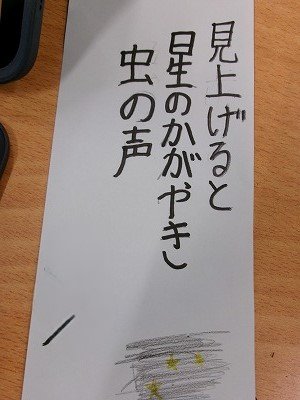 見上げると
星のかがやきし
虫の声